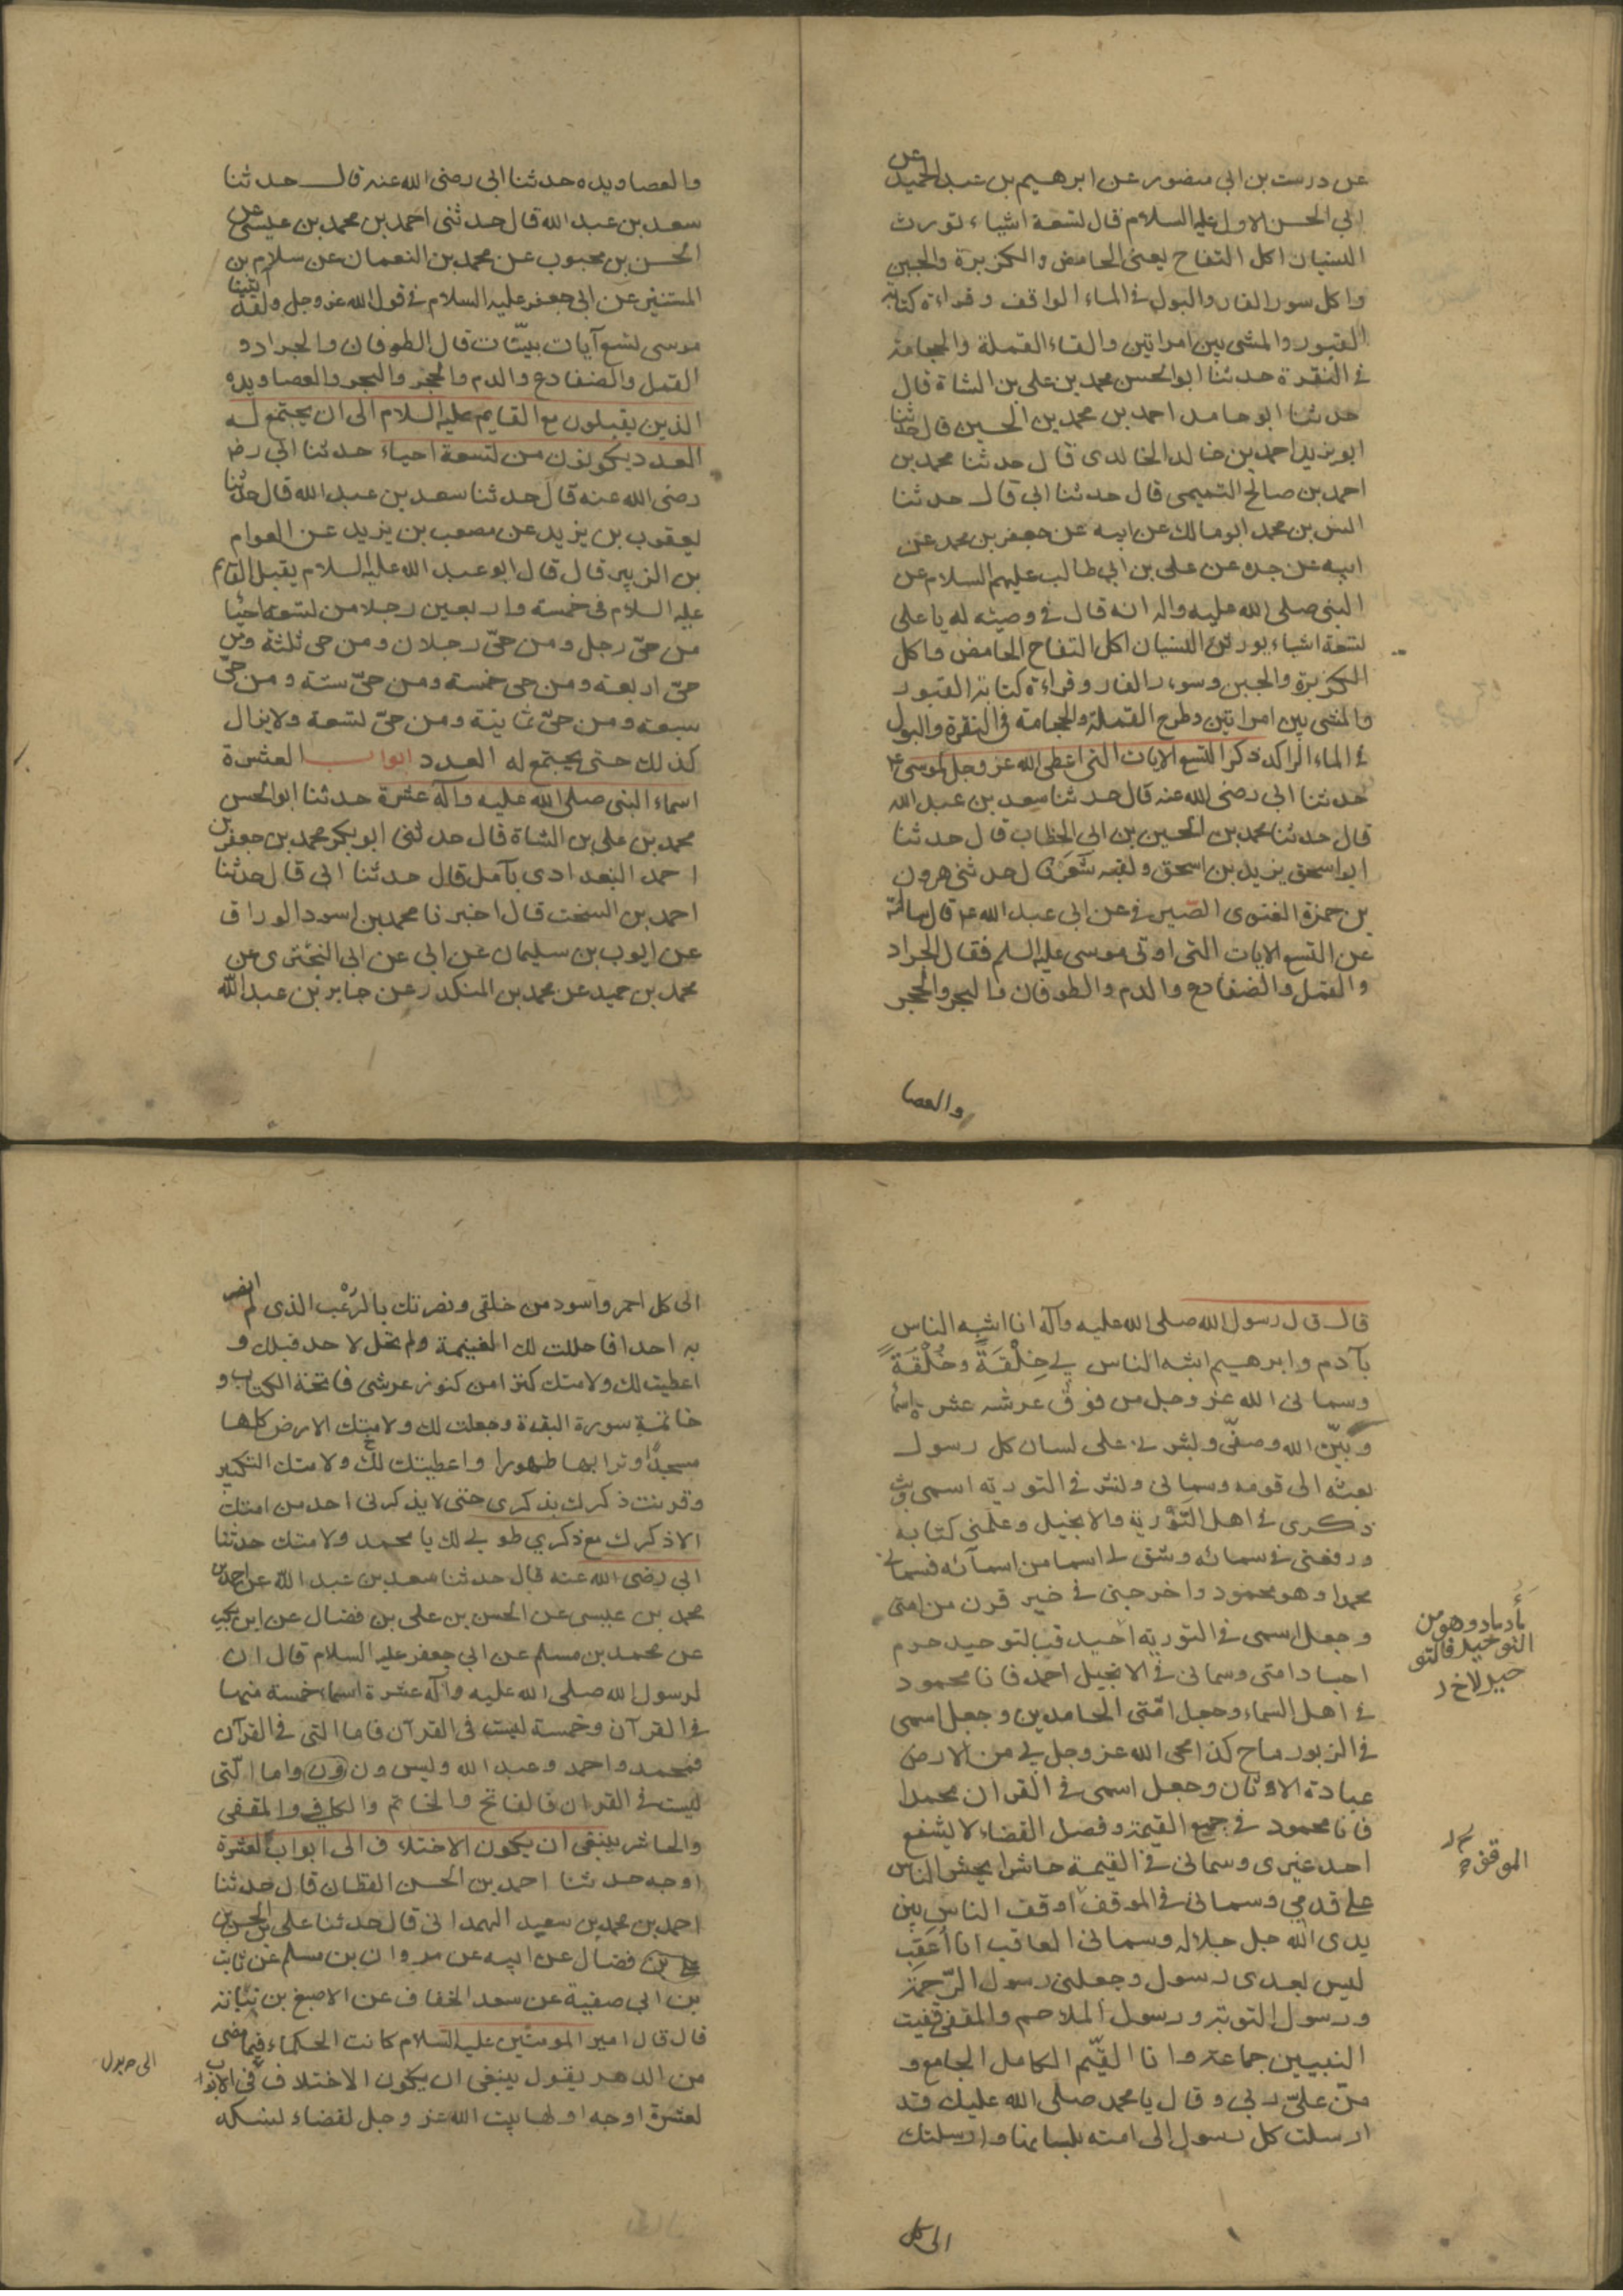 عن درست بن ابي منصور عن ابرهيم بن عبد الحميد عن
ابي الحسن الاول عليه السلام قال لتسعة اشياء تورث
النسيان اكل التفاح يعنى الحامض والكزبرة والجبن
واكل سور الفار والبول في الماء الواقف وقراءة كتابة
القبور والمشى بين امراتين والقاء القملة والحجامة
في النقرة حدثنا ابو الحسن محمد بن على بن الشاة قال
حدثنا ابو حامد احمد بن محمد بن الحسين قال حدثنا
ابو يزيد احمد بن خالد الخالدى قال حدثنا محمد بن
احمد بن صالح التميمى قال حدثنا ابى قال حدثنا
انس بن محمد ابو مالك عن ابيه عن جعفر بن محمد عن
ابيه عن جده عن على بن ابي طالب عليهم السلام عن
النبى صلى الله عليه واله انه قال في وصيته له يا على
لتسعة اشياء يورثن النسيان اكل التفاح الحامض واكل
الكزبرة والجبن وسور الفار وقراءة كتابة القبور
والمشى بين امراتين وطرح القملة والحجامة في النقرة والبول
في الماء الراكد ذكر التسع الايات التى اعطى الله عز وجل لموسى ع
حدثنا ابى رضى الله عنه قال حدثنا سعد بن عبد الله
قال حدثنا محمد بن الحسين بن ابى الخطاب قال حدثنا
ابو اسحق يزيد بن اسحق ولقبه شعر قال حدثنى هرون
بن حمزة الغنوى الصيرفى عن ابى عبد الله ع قال سالته
عن التسع الايات التى اوتى موسى عليه السلم فقال الجراد
والقمل والضفادع والدم والطوفان والبحر والحجر
والعصا
والعصا ويده حدثنا ابى رضى الله عنه قال حدثنا
سعد بن عبد الله قال حدثنى احمد بن محمد بن عيسى عن
الحسن بن محبوب عن محمد بن النعمان عن سلام بن
المستنير عن ابى جعفر عليه السلام في قول الله عز وجل ولقد اتينا
موسى تسع آيات بيّنات قال الطوفان والجراد و
القمل والضفادع والدم والحجر والبحر والعصا ويده
الذين يقبلون مع القايم عليه السلام الى ان يجتمع له
العدد يكونون من لتسعة احياء حدثنا ابى رض
رضى الله عنه قال حدثنا سعد بن عبد الله قال حدثنا
يعقوب بن يزيد عن مصعب بن يزيد عن العوام
بن الزبير قال قال ابو عبد الله عليه السلام يقبل القايم
عليه السلام في خمسة واربعين رجلا من لتسعة احيا
من حىّ رجل ومن حىّ رجلان ومن حى ثلثة ومن
حىّ اربعة ومن حى خمسة ومن حىّ ستة ومن حىّ
سبعة ومن حىّ ثمانية ومن حىّ لتسعة ولا يزال
كذلك حتى يجتمع له العدد ابواب العشرة
اسماء النبى صلى الله عليه وآله عشرة حدثنا ابو الحسن
محمد بن على بن الشاة قال حدثنى ابو بكر محمد بن جعفر بن
احمد البغدادى بآمل قال حدثنا ابى قال حدثنا
احمد بن السخت قال اخبرنا محمد بن اسود الوراق
عن ايوب بن سليمان عن ابى عن ابى البخترى عن
محمد بن حميد عن محمد بن المنكدر عن جابر بن عبد الله
قال قال رسول الله صلى الله عليه وآله انا اشبه الناس
بآدم وابرهيم اشبه الناس بى خِلْقَةً وخُلْقَةً
وسمانى الله عز وجل من فوق عرشه عشرة اسما
وبيّن الله وصفى وبشر بى على لسان كل رسول
بعثه الى قومه وسمانى ونشر في التورية اسمى وبث
ذكرى في اهل التَّوْرية والانجيل وعلمنى كتابه
ورفعنى في سمائه وشق لى اسما من اسمآئه فسمانى
محمدا وهو محمود واخرجنى في خير قرن من امتى
وجعل اسمى في التورية احيد فبالتوحيد حرم
اجساد امتى وسمانى في الانجيل احمد فانا محمود
في اهل السماء وجعل امّتى الحامدين وجعل اسمى
في الزبور ماح كذا محى الله عز وجل بى من الارض
عبادة الاوثان وجعل اسمى في القران محمدا
فانا محمود في جميع القيمة وفصل القضاء لا يشفع
احد غيرى وسمانى في القيمة حاشرا يحشر الناس
على قدمي وسمانى في الموقف اوقف الناس بين
يدى الله جل جلاله وسمانى العاقب انا أَعقب
ليس بعدى رسول وجعلنى رسول الرّحمة
ورسول التوبة ورسول الملاحم والمقفى قفيت
النبيين جماعة وانا القيّم الكامل الجامع و
منّ علىّ ربى وقال يا محمد صلى الله عليك وقد
ارسلت كل رسول الى امته بلسانها وارسلتك
الى كل
الى كل احمر واسود من خلقى ونصرتك بالرّعب الذى لم انصر
به احدا فاحللت لك الغنيمة ولم تحل لاحد قبلك و
اعطيت لك ولامتك كنزا من كنوز عرشى فاتحة الكتاب و
خاتمة سورة البقرة وجعلت لك ولامتك الارض كلها
مسجدا وترابها طهورا واعطيتك لك ولامتك التكبير
وقرنت ذكرك بذكرى حتى لا يذكرنى احد من امتك
الا ذكرك مع ذكري طوبى لك يا محمد ولامتك حدثنا
ابى رضى الله عنه قال حدثنا سعد بن عبد الله عن احمد بن
محمد بن عيسى عن الحسن بن على بن فضال عن ابن بكير
عن محمد بن مسلم عن ابى جعفر عليه السلام قال ان
لرسول الله صلى الله عليه وآله عشرة اسماء خمسة منها
في القرآن وخمسة ليست في القرآن فاما التى في القرآن
فمحمد واحمد وعبد الله وليس ون ون واما الّتى
ليست في القران فالفاتح والخاتم والكافى والمقفى
والحاشر ينبغى ان يكون الاختلاف الى ابواب لعشرة
اوجه حدثنا احمد بن الحسن القطان قال حدثنا
احمد بن محمد بن سعيد الهمدانى قال حدثنا على بن الحسن بن
على بن فضال عن ابيه عن مروان بن مسلم عن ثابت
بن ابى صفية عن سعد الخفاف عن الاصبغ بن نباتة
قال قال امير المومنين عليه السلام كانت الحكماء فيما مضى
من الدهر يقول ينبغى ان يكون الاختلاف في الابواب
لعشرة اوجه اولها بيت الله عز وجل لقضاء نسكه